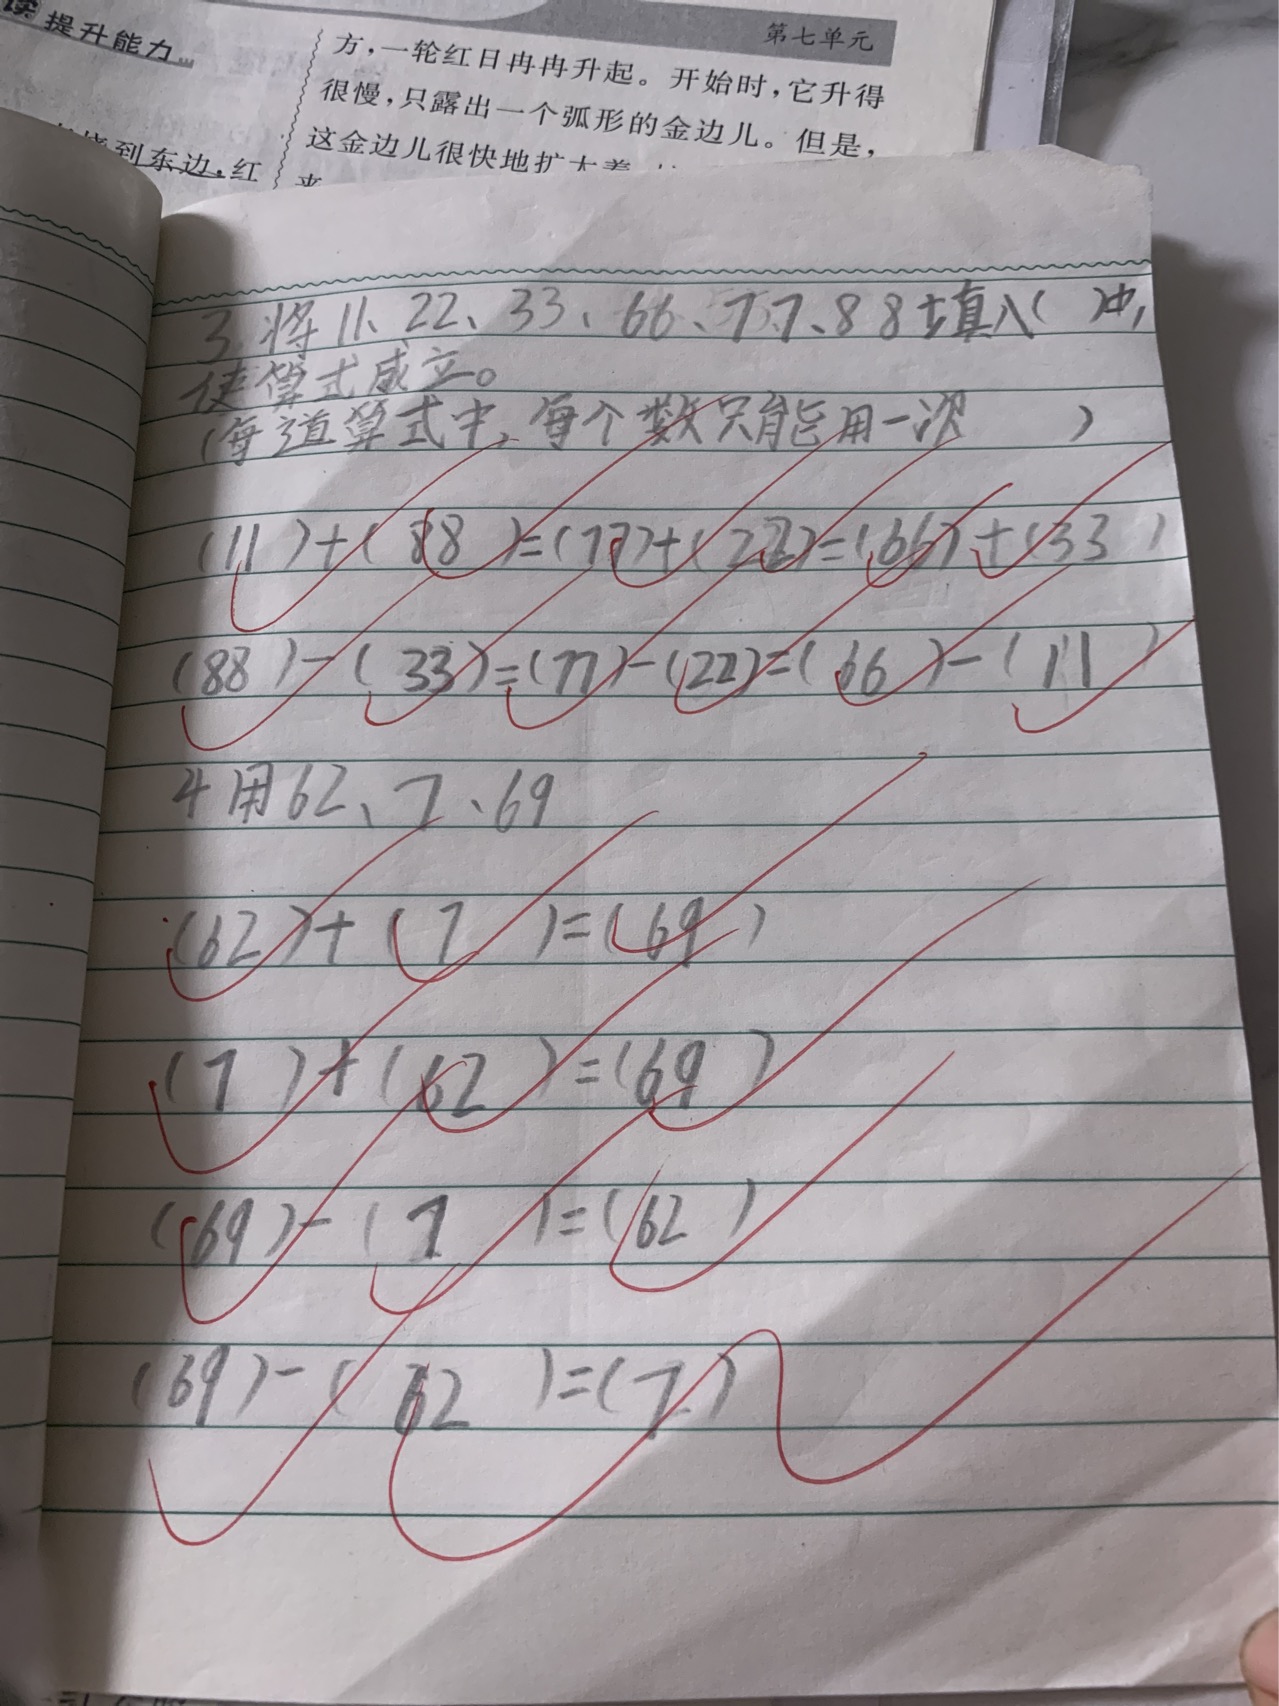 读 提升能力
第七单元
方，一轮红日冉冉升起。开始时，它升得
很慢，只露出一个弧形的金边儿。但是，
这金边儿很快地扩大着
到东边，红
来
3.将11、22、33、66、77、88填入( )中，
使算式成立。
(每道算式中，每个数只能用一次 )
(11)+(88)=(77)+(22)=(66)+(33)
(88)-(33)=(77)-(22)=(66)-(11)
4用62、7、69
(62)+(7)=(69)
(7)+(62)=(69)
(69)-(7)=(62)
(69)-(62)=(7)